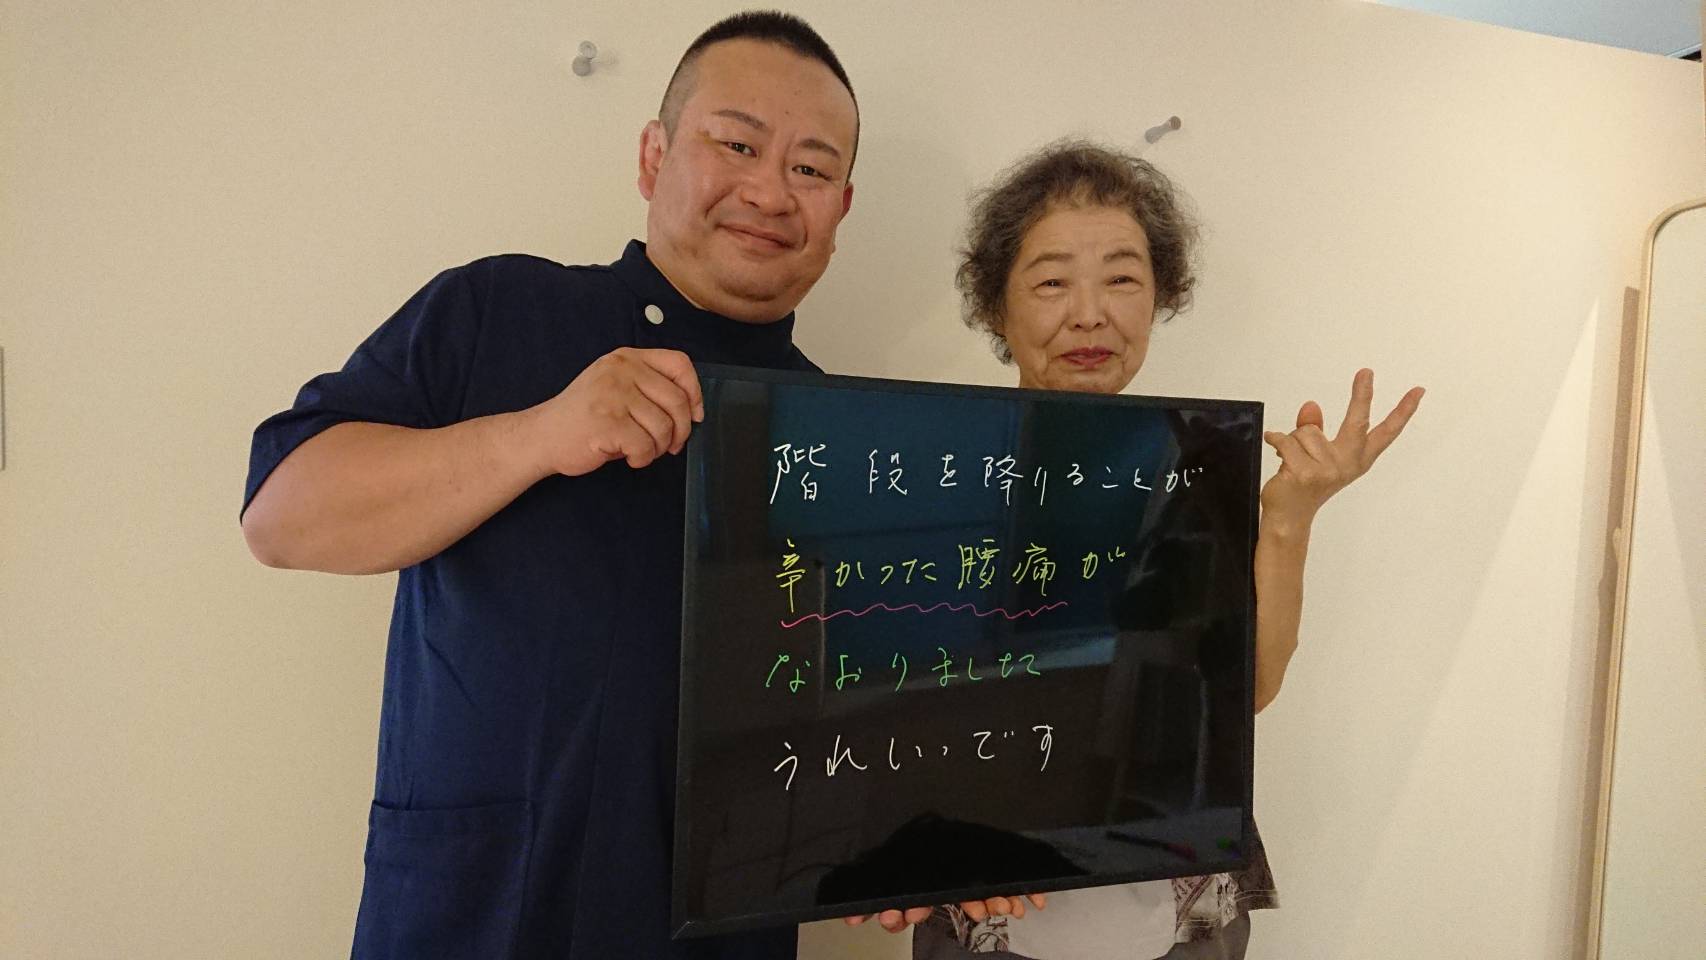 階段を降りることが
辛かった腰痛が
なおりまして
うれしいです